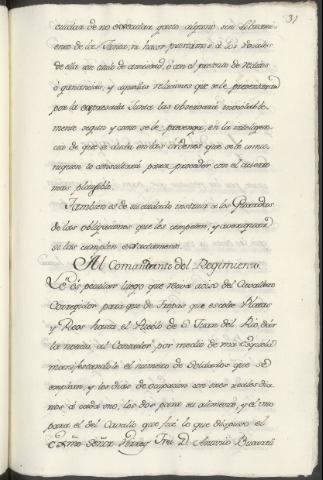 31
cuidar de no executar gasto alguno sin Libram-
iento de la Junta, ni hacer prestamos á los Vocales
de ella con titulo de amistad, ó con el pretexto de Viudas
ó ganancias, y aquellas relaciones que se le
por la expresada Junta las observará inviolable-
mente segun y como se le prevenga, en la inteligen-
cia de que si duda en las ordenes que se le comu-
niquen lo consultará para proceder con el acierto
mas plausible.
Tambien es de su cuidado instruir a los Guardas
de las obligaciones que les competen, y averiguará
si las cumplen exactamente.
Al Comandante del Regimiento.
Le es peculiar luego que reciva aviso del Cavallero
Corregidor para que de Tropas que escolte Platas
y Reos hasta el Pueblo de S. Juan del Rio, dar
la noticia al Contador por medio de una Esquela
manifestandole el numero de Soldados que se
emplean, y los dias de ocupacion con tres reales dia-
rios á cada uno, los dos para su alimento, y el uno
para el del Cavallo que fué lo que dispuso el
Exmo Señor Virrey Frei D. Antonio Bucareli